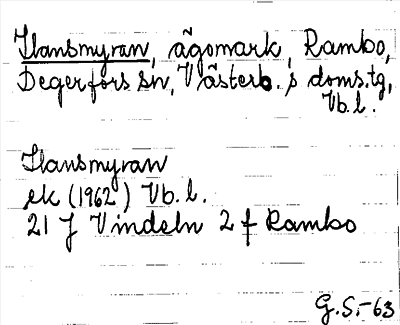 Hansmyran, ägomark, Rambo,
Degerfors sn, Västerb. s doms.tg,
Vb.l.
Hansmyran
ek (1962) Vb.l.
21 J Vindeln 2 f Rambo
G.S.-63